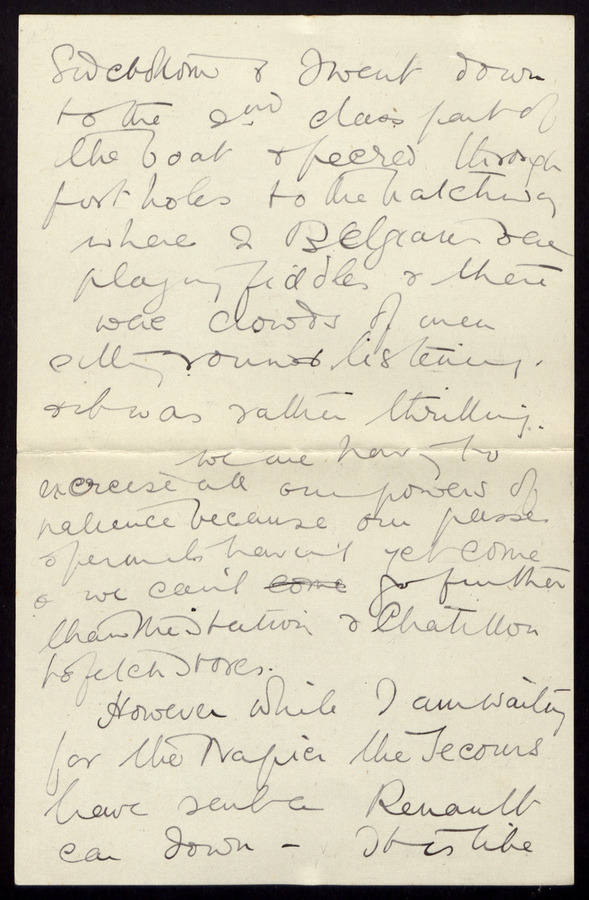 Sidebottom & I went down
to the 2nd class part of
the boat & peered through
port holes to the hatchway
where 2 Belgians were
playing fiddles & there
were clowds of men
sitting round listening.
& it was rather thrilling.
we are having to
exercise all our powers of
patience because our passes
& permits haven't yet come
& we can't come go further
than the station & Chatillon
to fetch stores.
However while I am waiting
for the Napier the Secours
have sent a Renault
car down - It is like